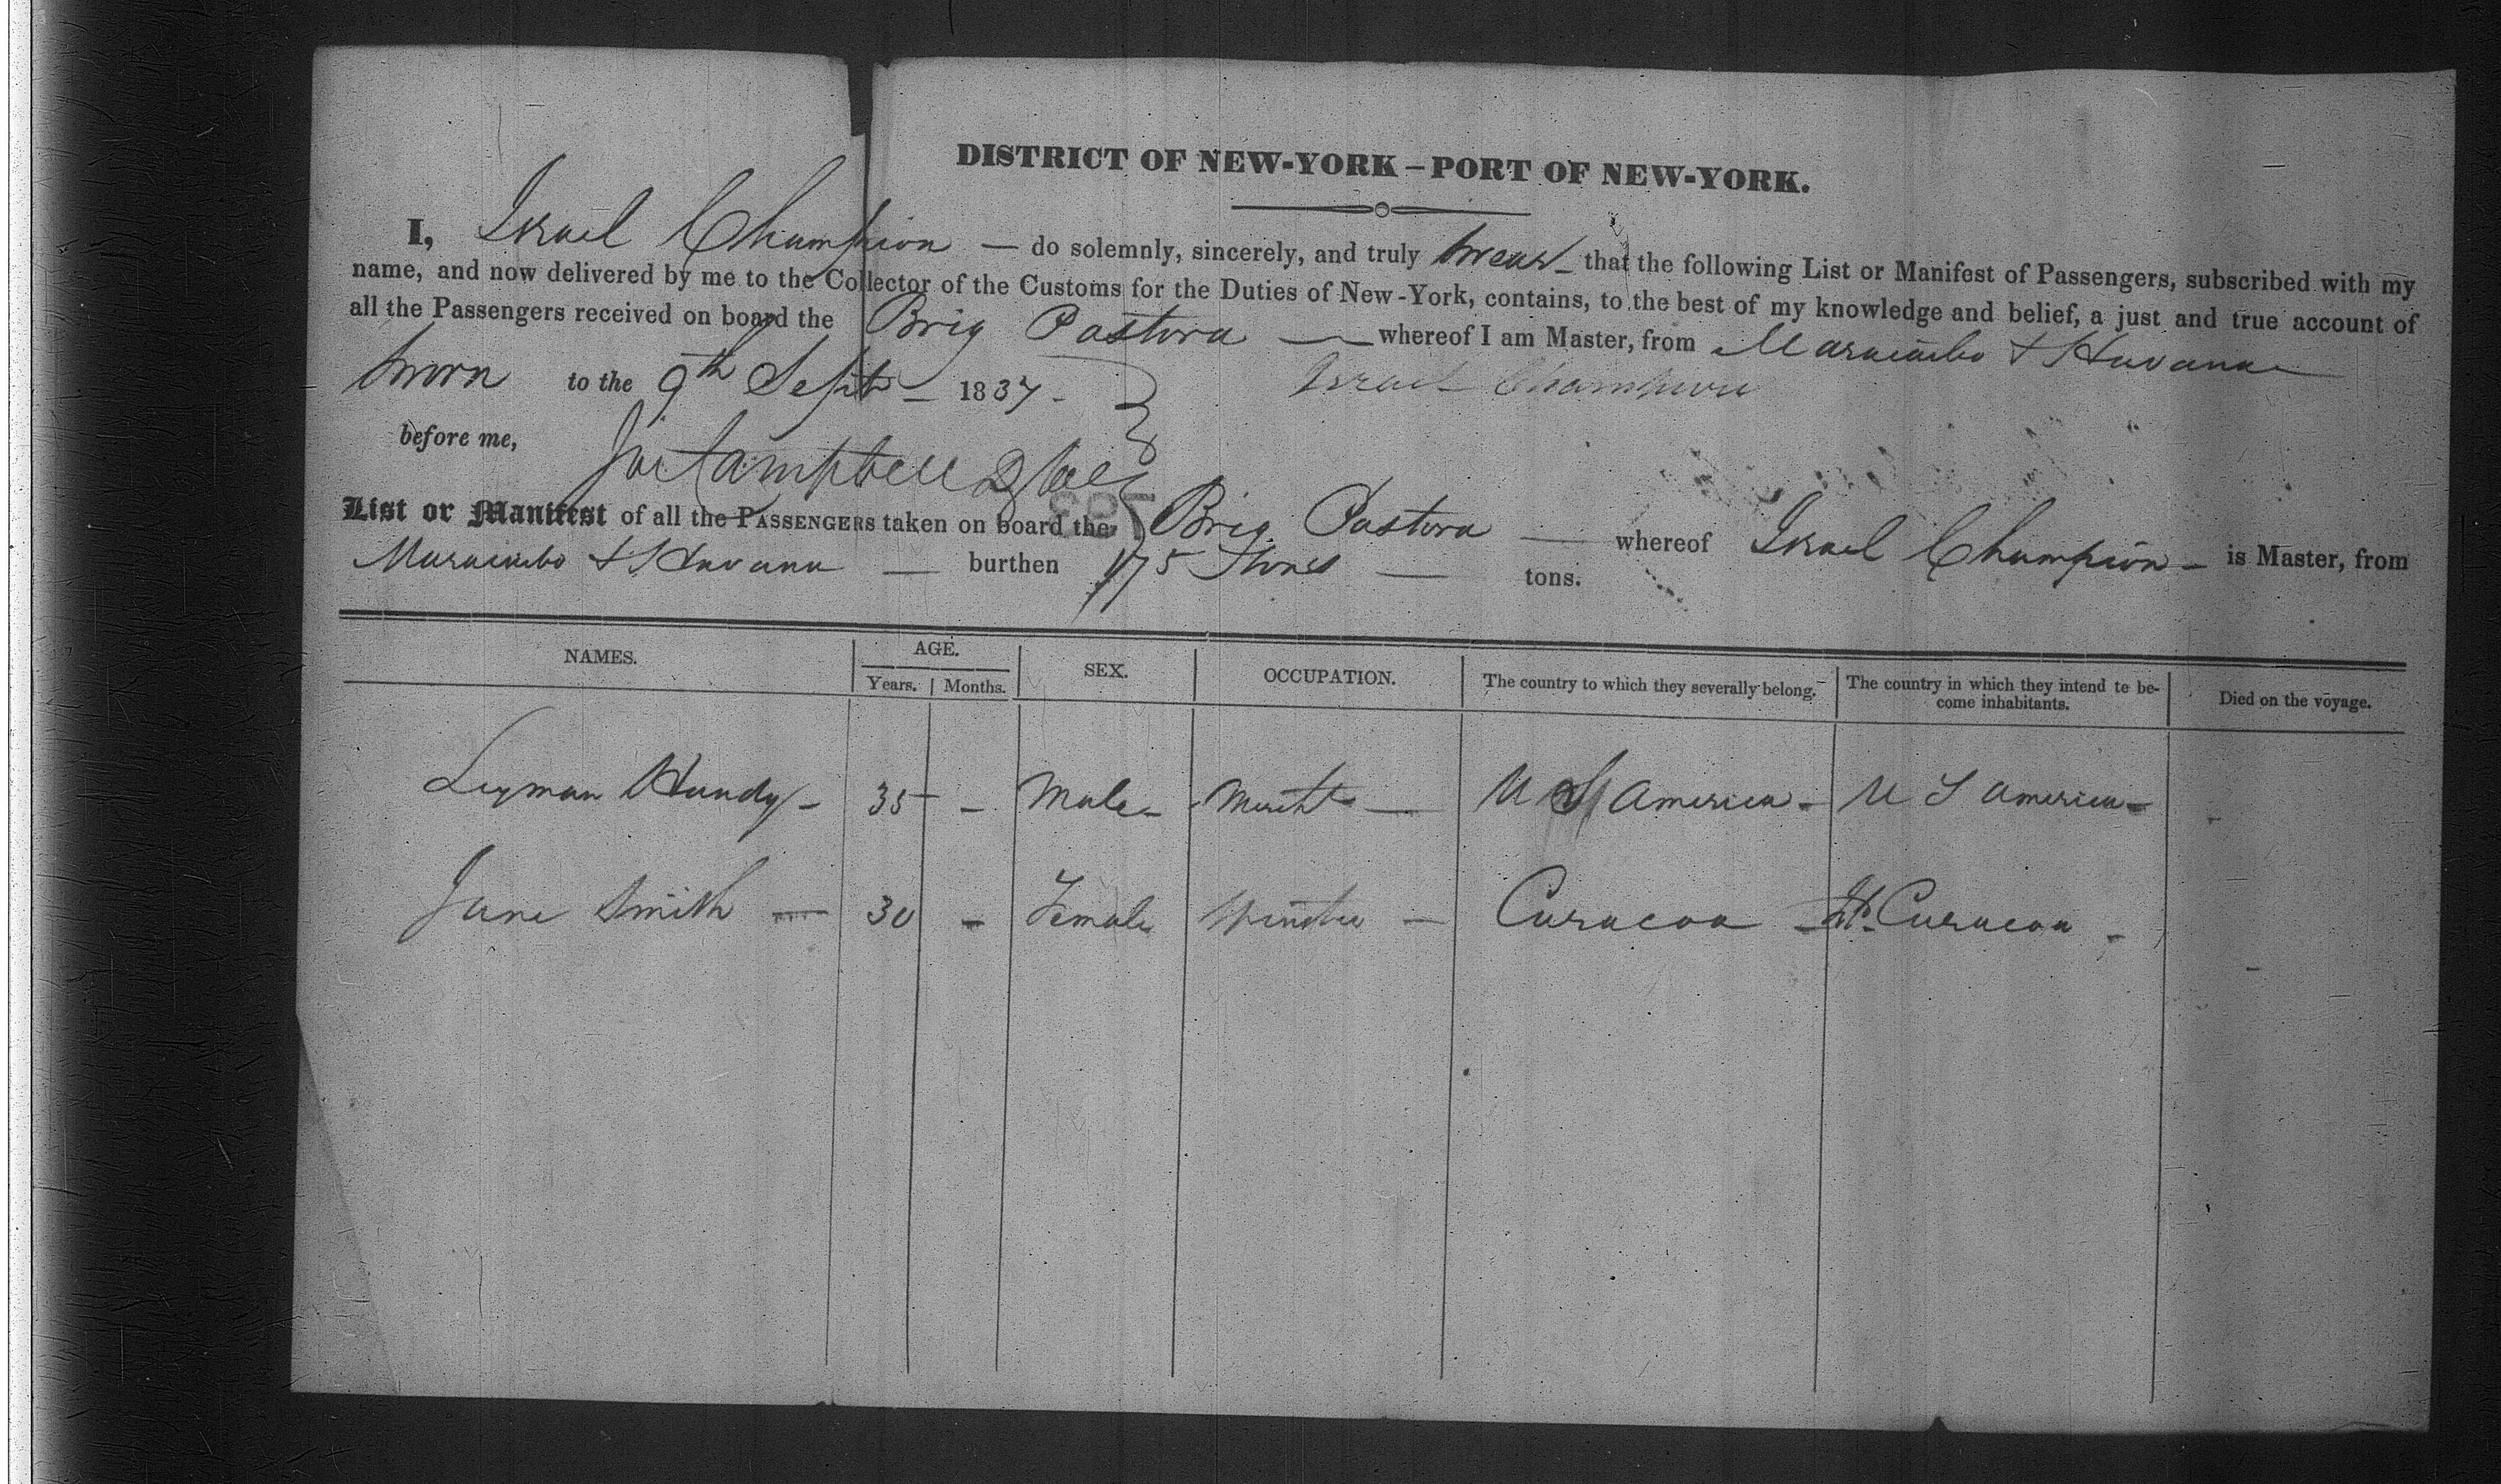 DISTRICT OF NEW-YORK – PORT OF NEW-YORK.
I, Israel Champion — do solemnly, sincerely, and truly swear – that the following List or Manifest of Passengers, subscribed with my
name, and now delivered by me to the Collector of the Customs for the Duties of New-York, contains, to the best of my knowledge and belief, a just and true account of
all the Passengers received on board the Brig Pastora — whereof I am Master, from Maracaibo & Havana
Sworn to the 9th Sept – 1837 – Israel Champion
before me, Campbell
List or Manifest of all the PASSENGERS taken on board the Brig Pastora — whereof Israel Champion – is Master, from
Maracaibo & Havana — burthen 175 Tons — tons.
NAMES. AGE. SEX. OCCUPATION. The country to which they severally belong. The country in which they intend te be-
come inhabitants. Died on the voyage.
Years. Months.
Lyman Handy – 35 – Male – Mercht — U S America – U S America –
Jane Smith — 30 – Female Spinster — Curacoa – Curacoa –